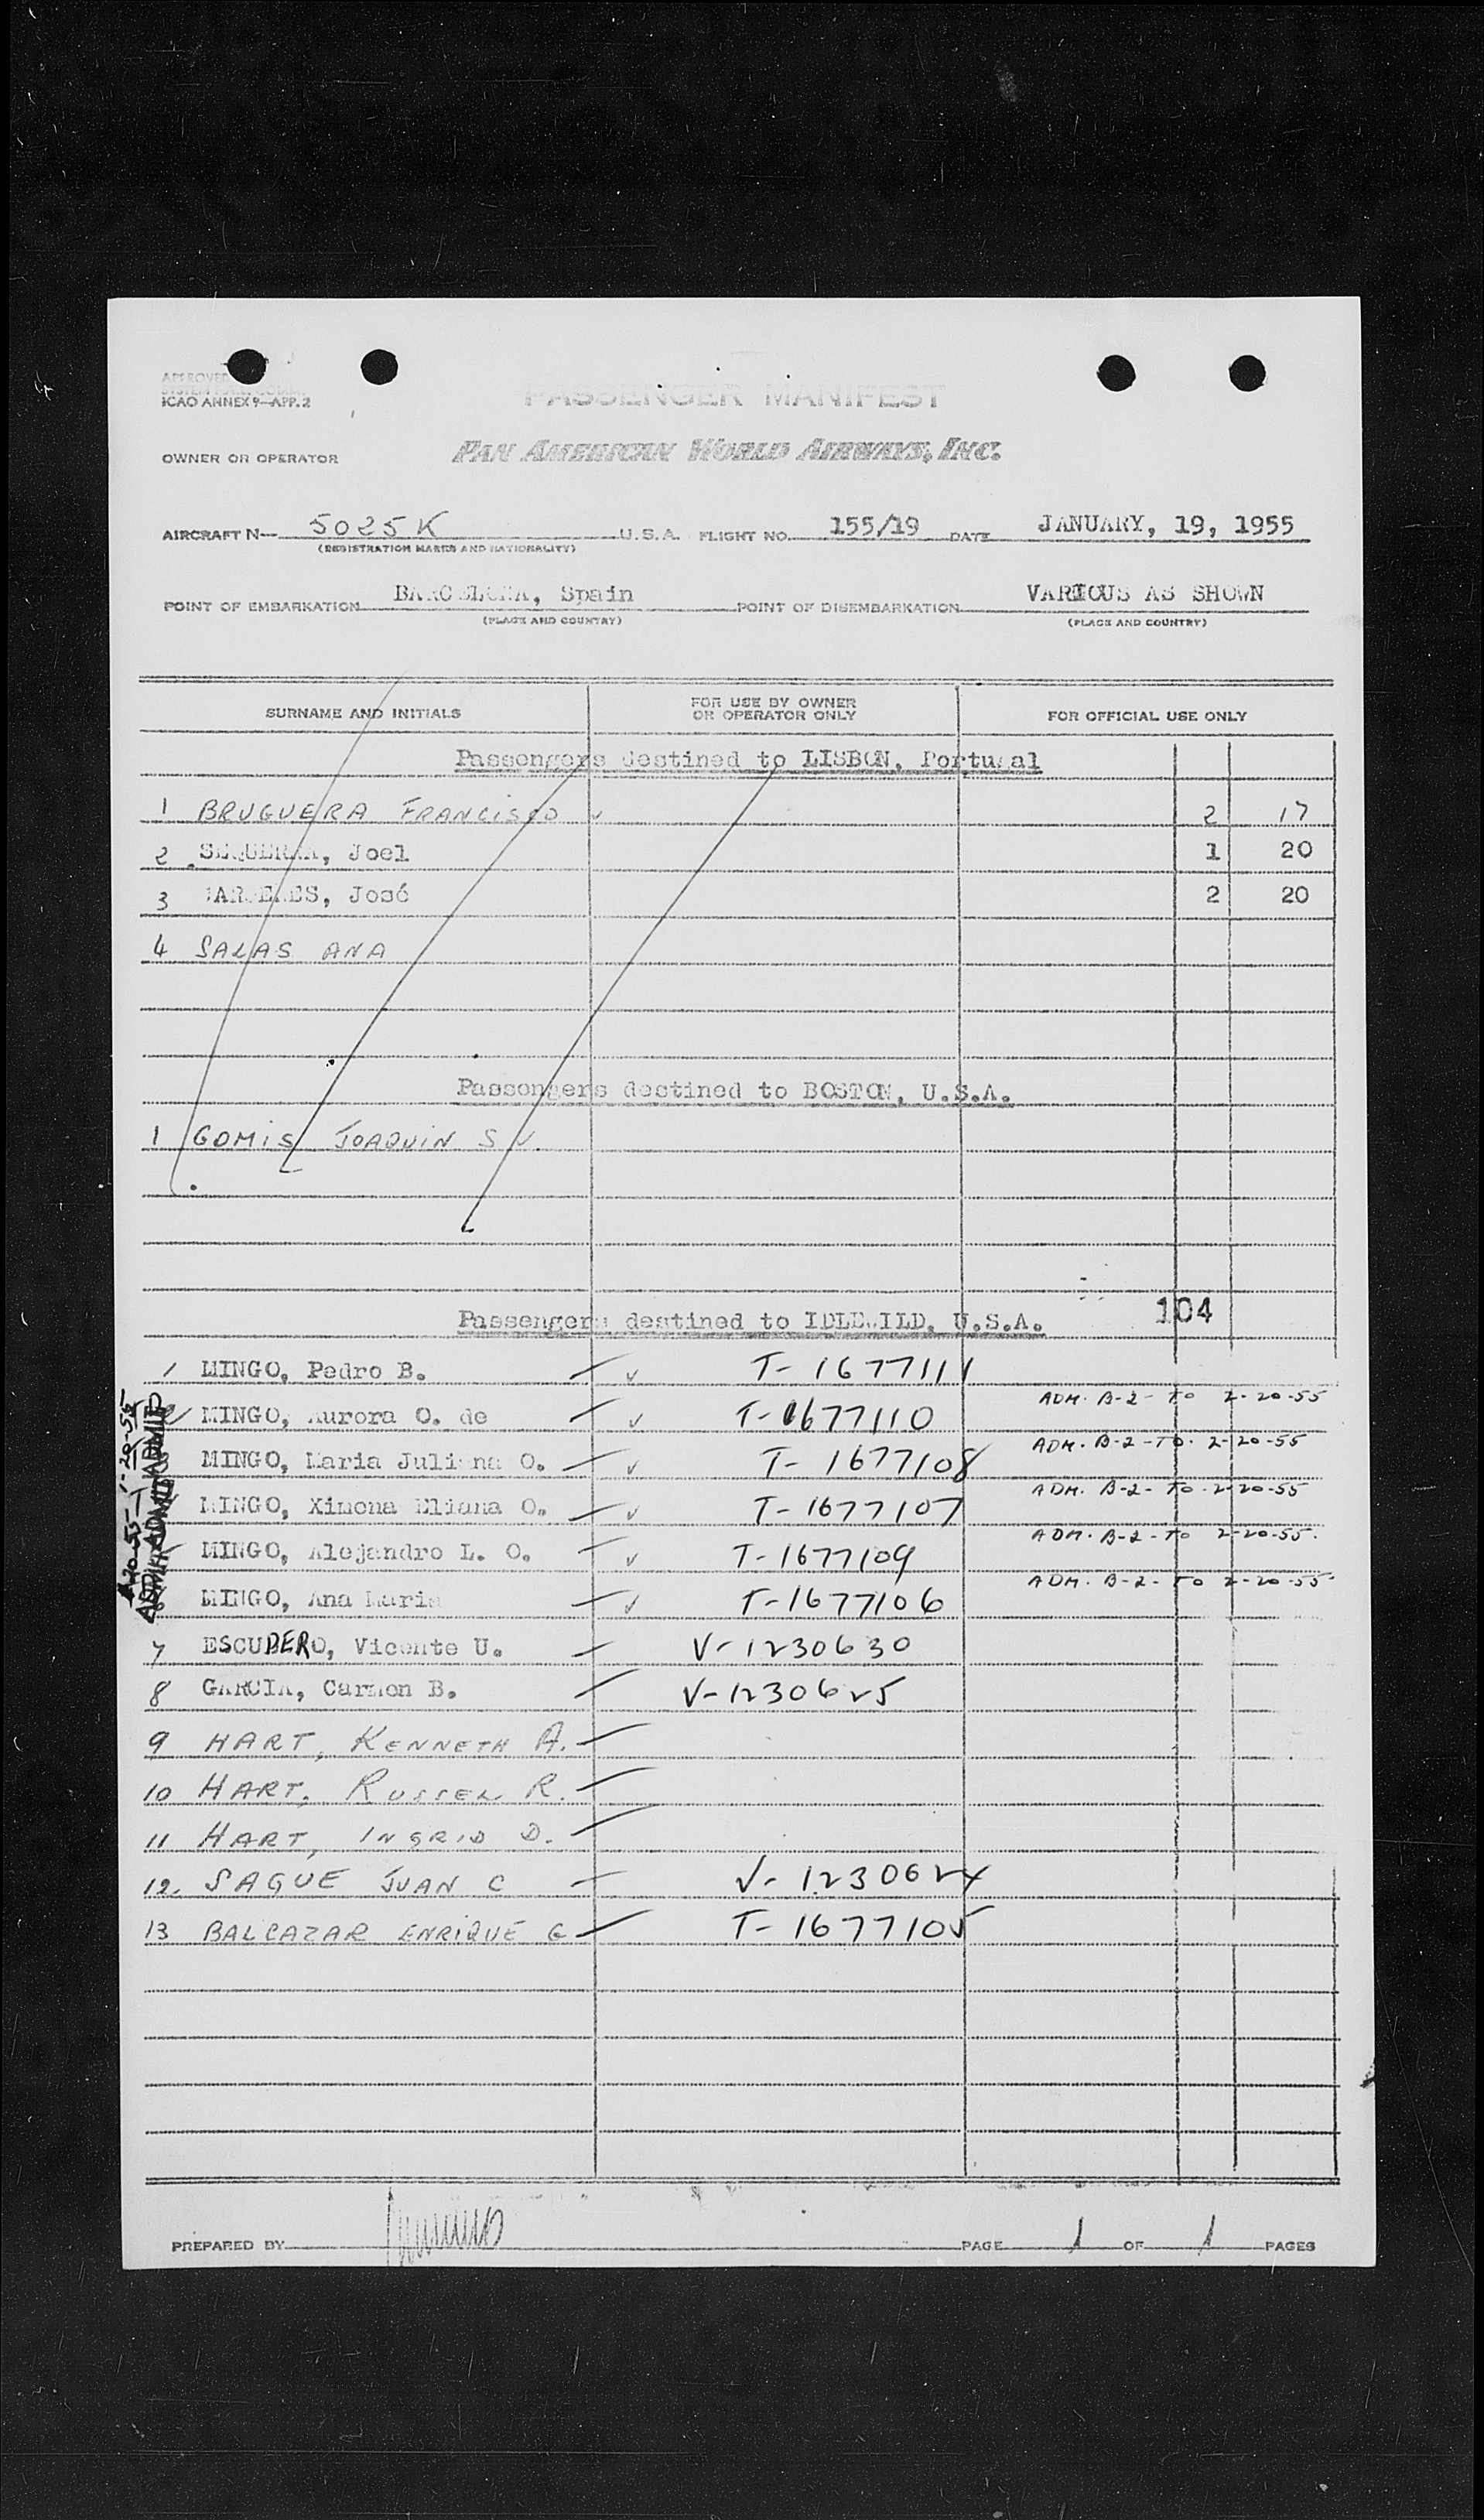 APPROVED
ICAO ANNEX 9—APP. 2
PASSENGER MANIFEST
OWNER OR OPERATOR PAN AMERICAN WORLD AIRWAYS, INC.
AIRCRAFT N— 5025K U.S.A. FLIGHT NO. 155/19 DATE JANUARY, 19, 1955
(REGISTRATION MARKS AND NATIONALITY)
POINT OF EMBARKATION BARCELONA, Spain POINT OF DISEMBARKATION VARIOUS AS SHOWN
(PLACE AND COUNTRY) (PLACE AND COUNTRY)
SURNAME AND INITIALS FOR USE BY OWNER OR OPERATOR ONLY FOR OFFICIAL USE ONLY
Passengers destined to LISBON, Portugal
1 BRUGUERA FRANCISCO 2 17
2 SEQUERRA, Joel 1 20
3 José 2 20
4 SALAS ANA
Passengers destined to BOSTON, U.S.A.
1 GOMIS JOAQUIN S
104
Passengers destined to IDLEWILD, U.S.A.
1 MINGO, Pedro B. T-1677111
ADM. B-2-TO 2-20-55
MINGO, Aurora O. de T-1677110
ADM. B-2-TO. 2-20-55
MINGO, Maria Juliana O. T-1677108
ADM. B-2-TO. 2-20-55
MINGO, Ximena Eliana O. T-1677107
ADM. B-2-TO 2-20-55.
MINGO, Alejandro L. O. T-1677109
ADM. B-2-TO 2-20-55
MINGO, Ana Maria T-1677106
7 ESCUDERO, Vicente U. V-1230630
8 GARCIA, Carmen B. V-1230625
9 HART, KENNETH A.
10 HART, RUSSEL R.
11 HART, INGRID D.
12. SAGUE JUAN C V-1230624
13 BALCAZAR ENRIQUE G T-1677105
PREPARED BY PAGE 1 OF 1 PAGES